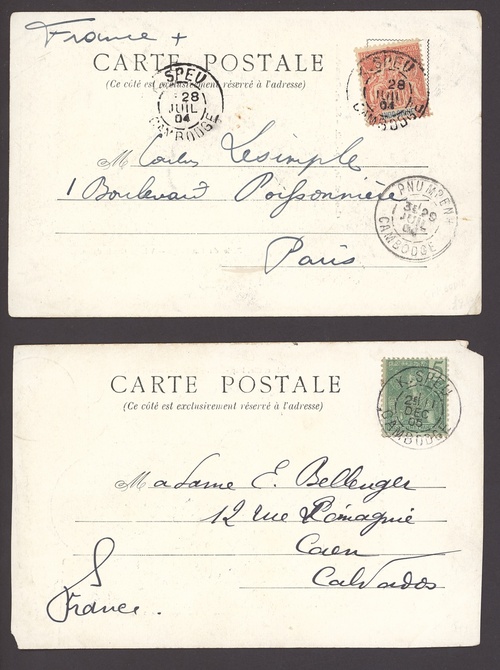 France +
CARTE POSTALE
(Ce côté est exclusivement réservé à l'adresse)
SPEU
28
JUIL
04
CAMBODGE
K. SPEU
28
JUIL
04
CAMBODGE
M Lesimple
1 Boulevard Poissonnière
Paris
PNUMPENH
29
JUIL
04
CAMBODGE
CARTE POSTALE
(Ce côté est exclusivement réservé à l'adresse)
5
K. SPEU
DEC
05
CAMBODGE
Madame E. Bellenger
12 rue
Caen
Calvados
France.